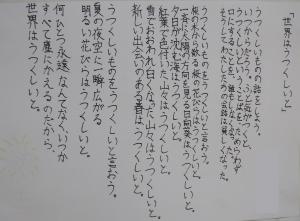 「世界はうつくしいと」
うつくしいものの話をしよう。
いつからだろう。ふと気がつくと、
うつくしいということばを、ためらわず
口にすることを、誰もしなくなった。
そうしてわたしたちの会話は貧しくなった。
うつくしいものをうつくしいと言おう。
桜の木から散る桜の花びらはうつくしいと。
一斉に太陽の方向を見る向日葵はうつくしいと。
夕日が沈む海はうつくしいと。
紅葉で色付いた山々はうつくしいと。
雪でおおわれ白くなった山々はうつくしいと。
新しい出会いのある春はうつくしいと。
うつくしいものをうつくしいと言おう。
夏の夜空に一瞬広がる
明るい花びらはうつくしいと。
何ひとつ永遠なんてなく、いつか
すべて塵にかえるのだから、
世界はうつくしいと。